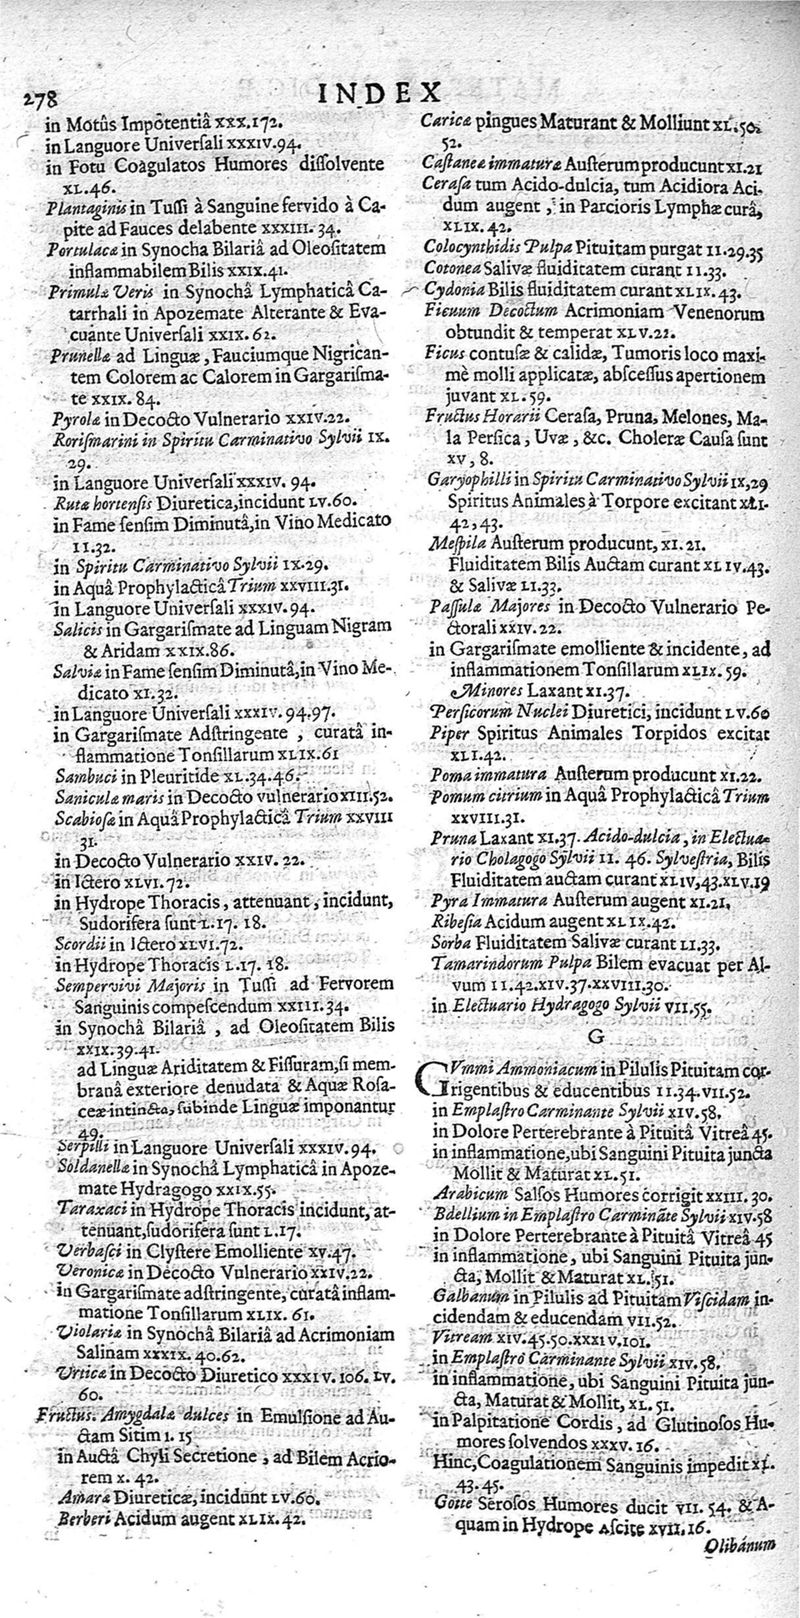 278
INDEX
in Motûs Impotentiâ XXX.172.
in Languore Universali XXXIV.94.
in Fotu Coagulatos Humores dissolvente
XL.46.
Plantaginis in Tussi à Sanguine fervido à Ca-
pite ad Fauces delabente XXXIII. 34.
Portulacæ in Synocha Bilariâ ad Oleositatem
inflammabilem Bilis XXIX.41.
Primulæ Veris in Synochâ Lymphaticâ Ca-
tarrhali in Apozemate Alterante & Eva-
cuante Universali XXIX.62.
Prunellæ ad Linguæ, Fauciumque Nigrican-
tem Colorem ac Calorem in Gargarisma-
te XXIX. 84.
Pyrolæ in Decocto Vulnerario XXIV.22.
Rorismarini in Spiritu Carminativo Sylvii IX.
29.
in Languore Universali XXXIV. 94.
Rutæ hortensis Diuretica, incidunt LV.60.
in Fame sensim Diminutâ, in Vino Medicato
II.32.
in Spiritu Carminativo Sylvii IX.29.
in Aquâ Prophylacticâ Trium XXVIII.31.
in Languore Universali XXXIV.94.
Salicis in Gargarismate ad Linguam Nigram
& Aridam XXIX.86.
Salviæ in Fame sensim Diminutâ, in Vino Me-
dicato XI.32.
in Languore Universali XXXIV. 94.97.
in Gargarismate Adstringente, curatâ in-
flammatione Tonsillarum XLIX.61
Sambuci in Pleuritide XL.34.46.
Saniculæ maris in Decocto vulnerario XIII.52.
Scabiosæ in Aquâ Prophylacticâ Trium XXVIII
31.
in Decocto Vulnerario XXIV. 22.
in Ictero XLVI.72.
in Hydrope Thoracis, attenuant, incidunt,
Sudorifera sunt L.17. 18.
Scordii in Ictero XLVI.72.
in Hydrope Thoracis L.17. 18.
Sempervivi Majoris in Tussi ad Fervorem
Sanguinis compescendum XXIII.34.
in Synochâ Bilariâ, ad Oleositatem Bilis
XXIX.39.41.
ad Linguæ Ariditatem & Fissuram, si mem-
branâ exteriore denudata & Aquæ Rosa-
ceæ intincta, subinde Linguæ imponantur
49.
Serpilli in Languore Universali XXXIV.94.
Soldanellæ in Synochâ Lymphaticâ in Apoze-
mate Hydragogo XXIX.55.
Taraxaci in Hydrope Thoracis incidunt, at-
tenuant, sudorifera sunt L.17.
Verbasci in Clystere Emolliente XV.47.
Veronicæ in Decocto Vulnerario XXIV.22.
in Gargarismate adstringente, curatâ inflam-
matione Tonsillarum XLIX. 61.
Violariæ in Synochâ Bilariâ ad Acrimoniam
Salinam XXXIX. 40.62.
Urticæ in Decocto Diuretico XXXIV. 106. LV.
60.
Fructus. Amygdalæ dulces in Emulsione ad Au-
ctam Sitim I. 15
in Auctâ Chyli Secretione, ad Bilem Acrio-
rem X. 42.
Amaræ Diureticæ, incidunt LV.60.
Berberi Acidum augent XLIX. 42.
Caricæ pingues Maturant & Molliunt XL.50.
52.
Castaneæ immaturæ Austerum producunt XI.21
Cerasa tum Acido-dulcia, tum Acidiora Aci-
dum augent, in Parcioris Lymphæ curâ,
XLIX. 42.
Colocynthidis Pulpa Pituitam purgat II.29.35
Cotonea Salivæ fluiditatem curant II.33.
Cydonia Bilis fluiditatem curant XLIX. 43.
Ficuum Decoctum Acrimoniam Venenorum
obtundit & temperat XLV.22.
Ficus contusæ & calidæ, Tumoris loco maxi-
mè molli applicatæ, abscessus apertionem
juvant XL.59.
Fructus Horarii Cerasa, Pruna, Melones, Ma-
la Persica, Uvæ, &c. Choleræ Causa sunt
XV, 8.
Garyophilli in Spiritu Carminativo Sylvii IX,29
Spiritus Animales à Torpore excitant XLI.
42,43.
Mespila Austerum producunt, XI.21.
Fluiditatem Bilis Auctam curant XLIV.43.
& Salivæ LI.33.
Passulæ Majores in Decocto Vulnerario Pe-
ctorali XXIV. 22.
in Gargarismate emolliente & incidente, ad
inflammationem Tonsillarum XLIX. 59.
Minores Laxant XI.37.
Persicorum Nuclei Diuretici, incidunt LV.60
Piper Spiritus Animales Torpidos excitat
XLI.42.
Poma immatura Austerum producunt XI.22.
Pomum citrium in Aquâ Prophylacticâ Trium
XXVIII.31.
Pruna Laxant XI.37. Acido-dulcia, in Electua-
rio Cholagogo Sylvii II. 46. Sylvestria, Bilis
Fluiditatem auctam curant XLIV,43.XLV.19
Pyra Immatura Austerum augent XI.21.
Ribesia Acidum augent XLIX.42.
Sorba Fluiditatem Salivæ curant LI.33.
Tamarindorum Pulpa Bilem evacuat per Al-
vum II.42.XIV.37.XXVIII.30.
in Electuario Hydragogo Sylvii VII.55.
G
GVmmi Ammoniacum in Pilulis Pituitam cor-
rigentibus & educentibus II.34.VII.52.
in Emplastro Carminante Sylvii XIV.58.
in Dolore Perterebrante à Pituitâ Vitreâ 45.
in inflammatione, ubi Sanguini Pituita juncta
Mollit & Maturat XL.51.
Arabicum Salsos Humores corrigit XXIII. 30.
Bdellium in Emplastro Carminãte Sylvii XIV.58
in Dolore Perterebrante à Pituitâ Vitreâ 45
in inflammatione, ubi Sanguini Pituita jun-
cta, Mollit & Maturat XL.51.
Galbanum in Pilulis ad Pituitam Viscidam in-
cidendam & educendam VII.52.
Vitream XIV.45.50.XXXIV.101.
in Emplastro Carminante Sylvii XIV.58.
in inflammatione, ubi Sanguini Pituita jun-
cta, Maturat & Mollit, XL.51.
in Palpitatione Cordis, ad Glutinosos Hu-
mores solvendos XXXV.16.
Hinc, Coagulationem Sanguinis impedit XL.
43.45.
Gotte Serosos Humores ducit VII. 54. & A-
quam in Hydrope Ascite XVII.16.
Olibánum